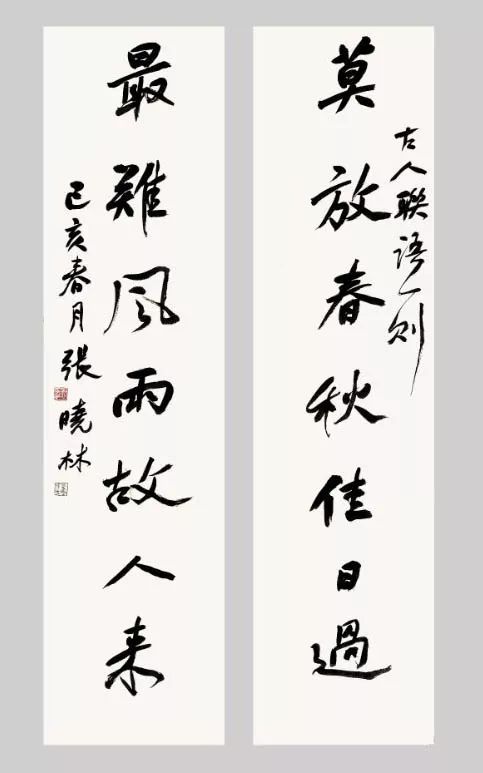 莫放春秋佳日過
古人聯語一則
最難風雨故人来
己亥春月張曉林